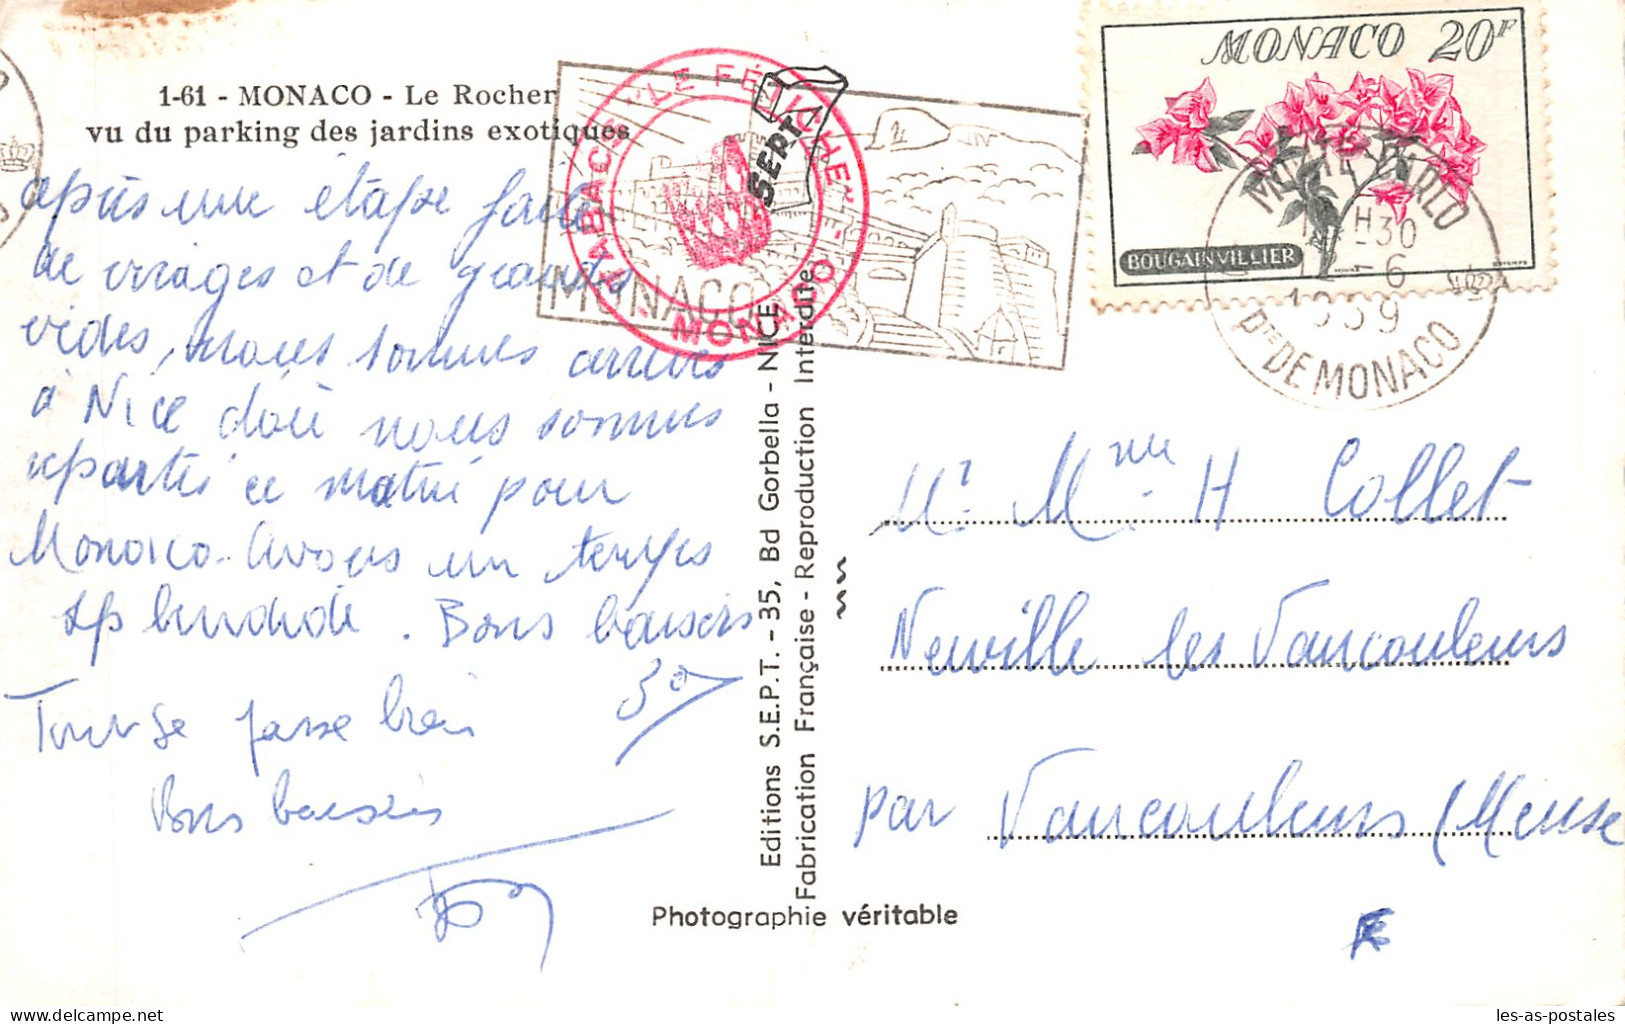 1-61 - MONACO - Le Rocher
vu du parking des jardins exotiques
après une étape faite
de virages et de grands
vides, nous sommes arrivés
à Nice d'où nous sommes
repartis ce matin pour
Monaco. Avons un temps
splendide. Bons baisers
Tout se passe bien
Bons baisers
TABACS "LE FÉTICHE"
MONACO
SEPT
MONACO
MONACO 20F
BOUGAINVILLIER
MONTE-CARLO
H30
-6
1959
Pté DE MONACO
Editions S.E.P.T. - 35, Bd Gorbella - NICE
Fabrication Française - Reproduction Interdite
Photographie véritable
Mr. Mme. H Collet
Neuville les Vaucouleurs
par Vaucouleurs (Meuse
les-as-postales